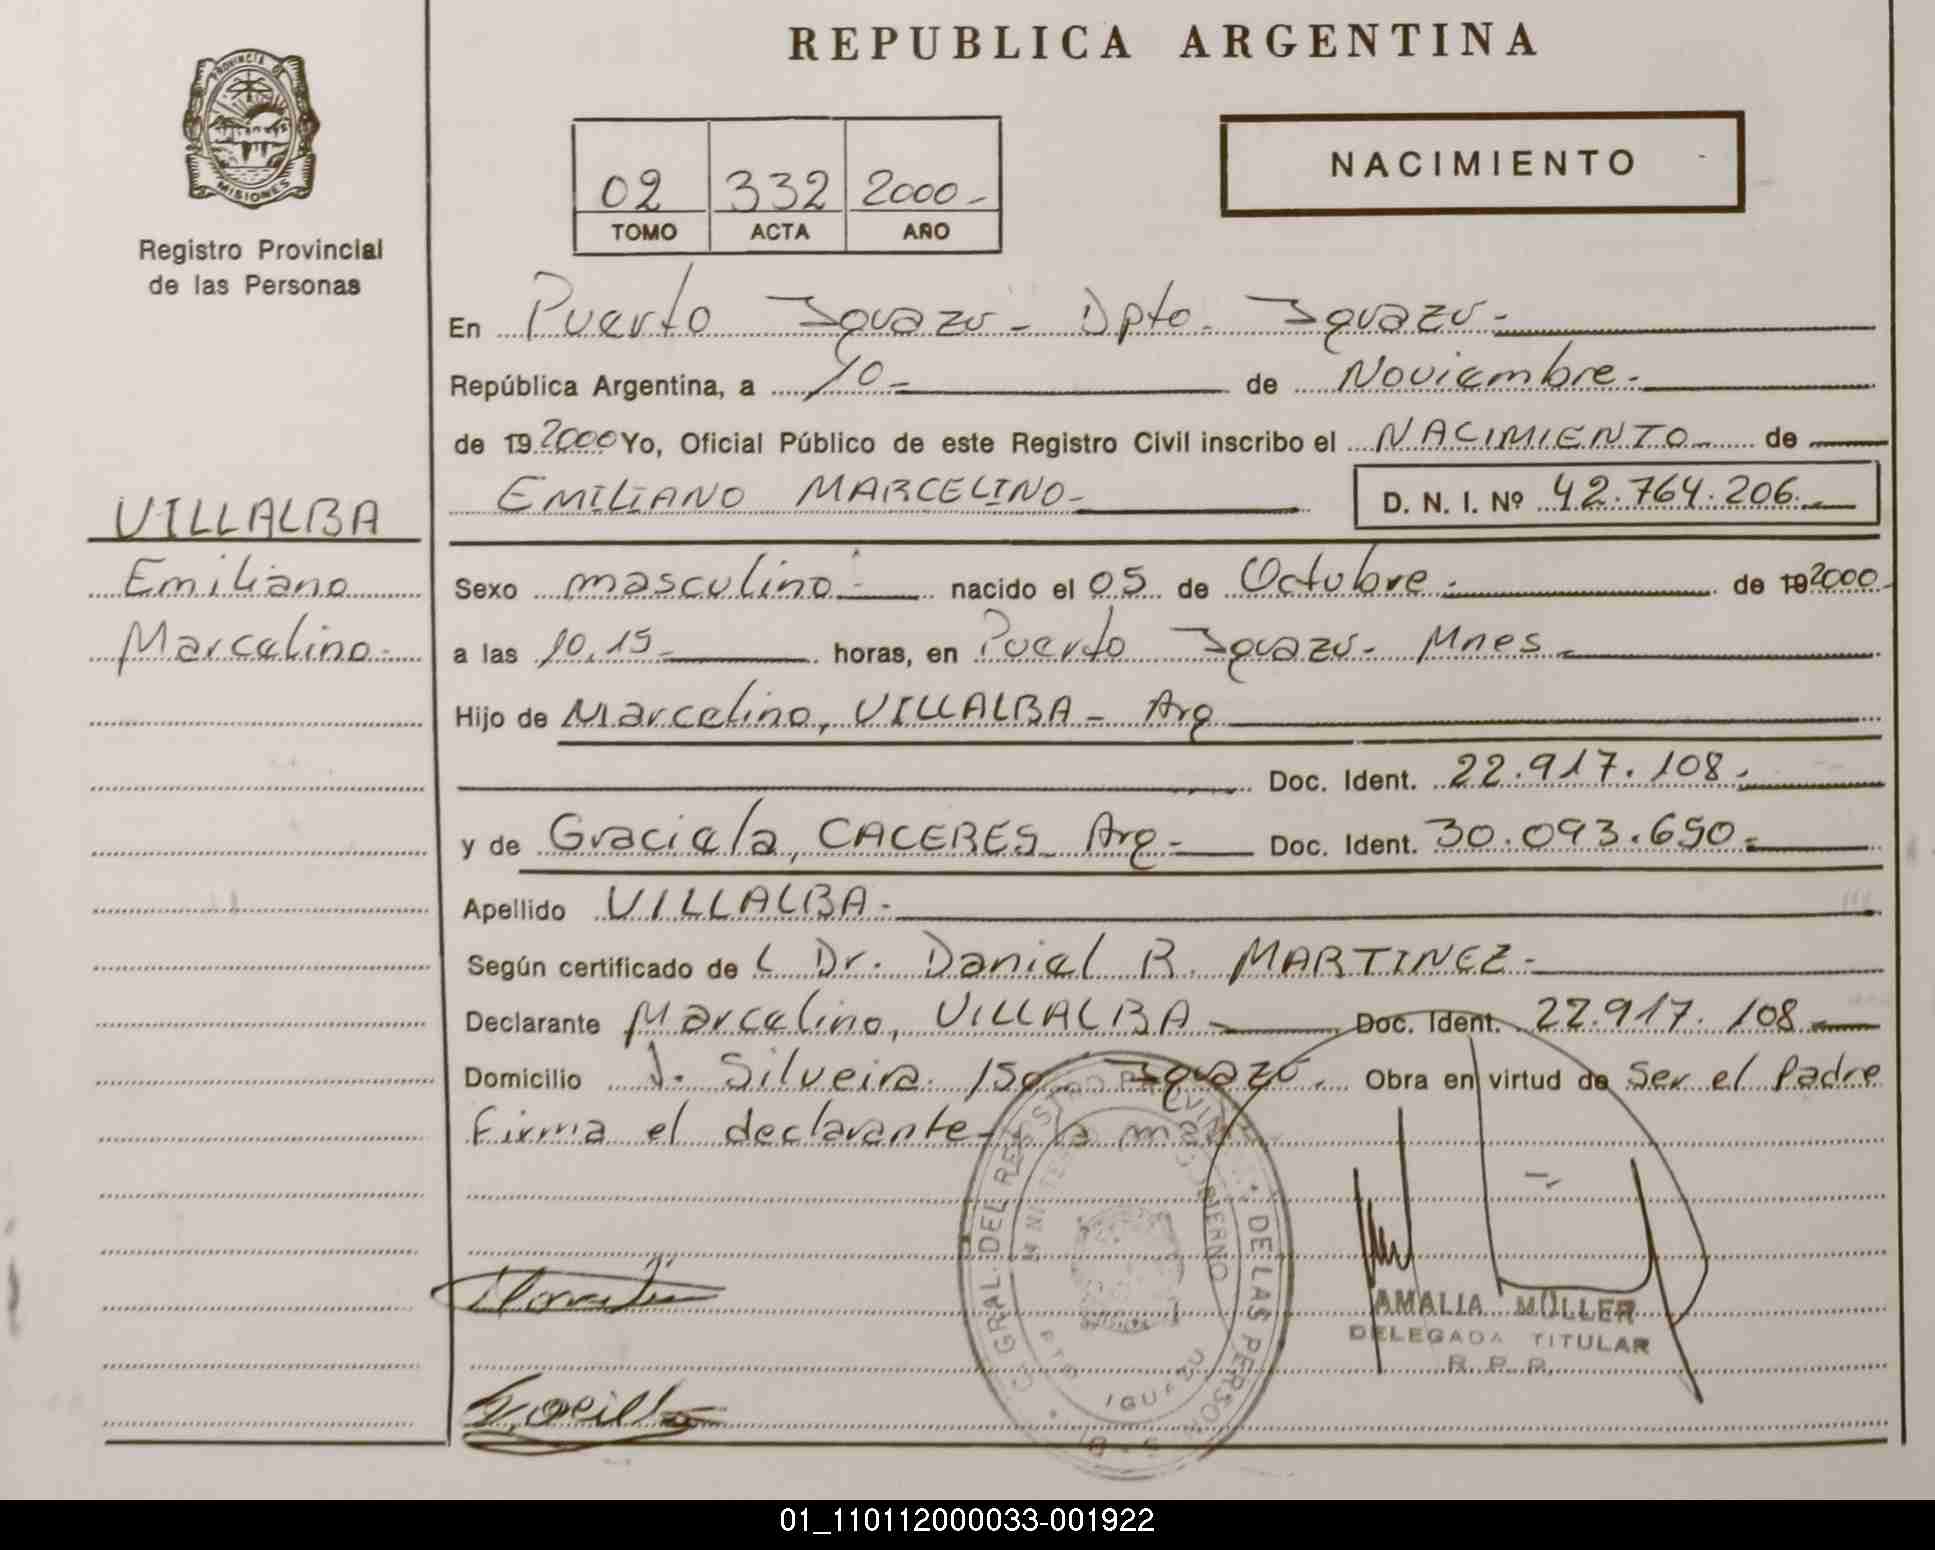 REPUBLICA ARGENTINA
PROVINCIA DE
MISIONES
Registro Provincial
de las Personas
02 332 2000-
TOMO ACTA AÑO
NACIMIENTO
En Puerto Iguazú- Dpto. Iguazú-
República Argentina, a 10- de Noviembre-
de 19 2000 Yo, Oficial Público de este Registro Civil inscribo el NACIMIENTO de
EMILIANO MARCELINO- D. N. I. Nº 42.764.206.-
VILLALBA
Emiliano
Marcelino-
Sexo masculino- nacido el 05 de Octubre- de 19 2000-
a las 10,15- horas, en Puerto Iguazú- Mnes-
Hijo de Marcelino, VILLALBA- Arg
Doc. Ident. 22.917.108-
y de Graciela, CACERES- Arg- Doc. Ident. 30.093.650-
Apellido VILLALBA-
Según certificado de L Dr. Daniel R. MARTINEZ-
Declarante Marcelino, VILLALBA- Doc. Ident. 22.917.108-
Domicilio J. Silveira 150 Iguazú. Obra en virtud de Ser el Padre
Firma el declarante- y la madre
AMALIA MÜLLER
DELEGADA TITULAR
R. P. P.
01_110112000033-001922